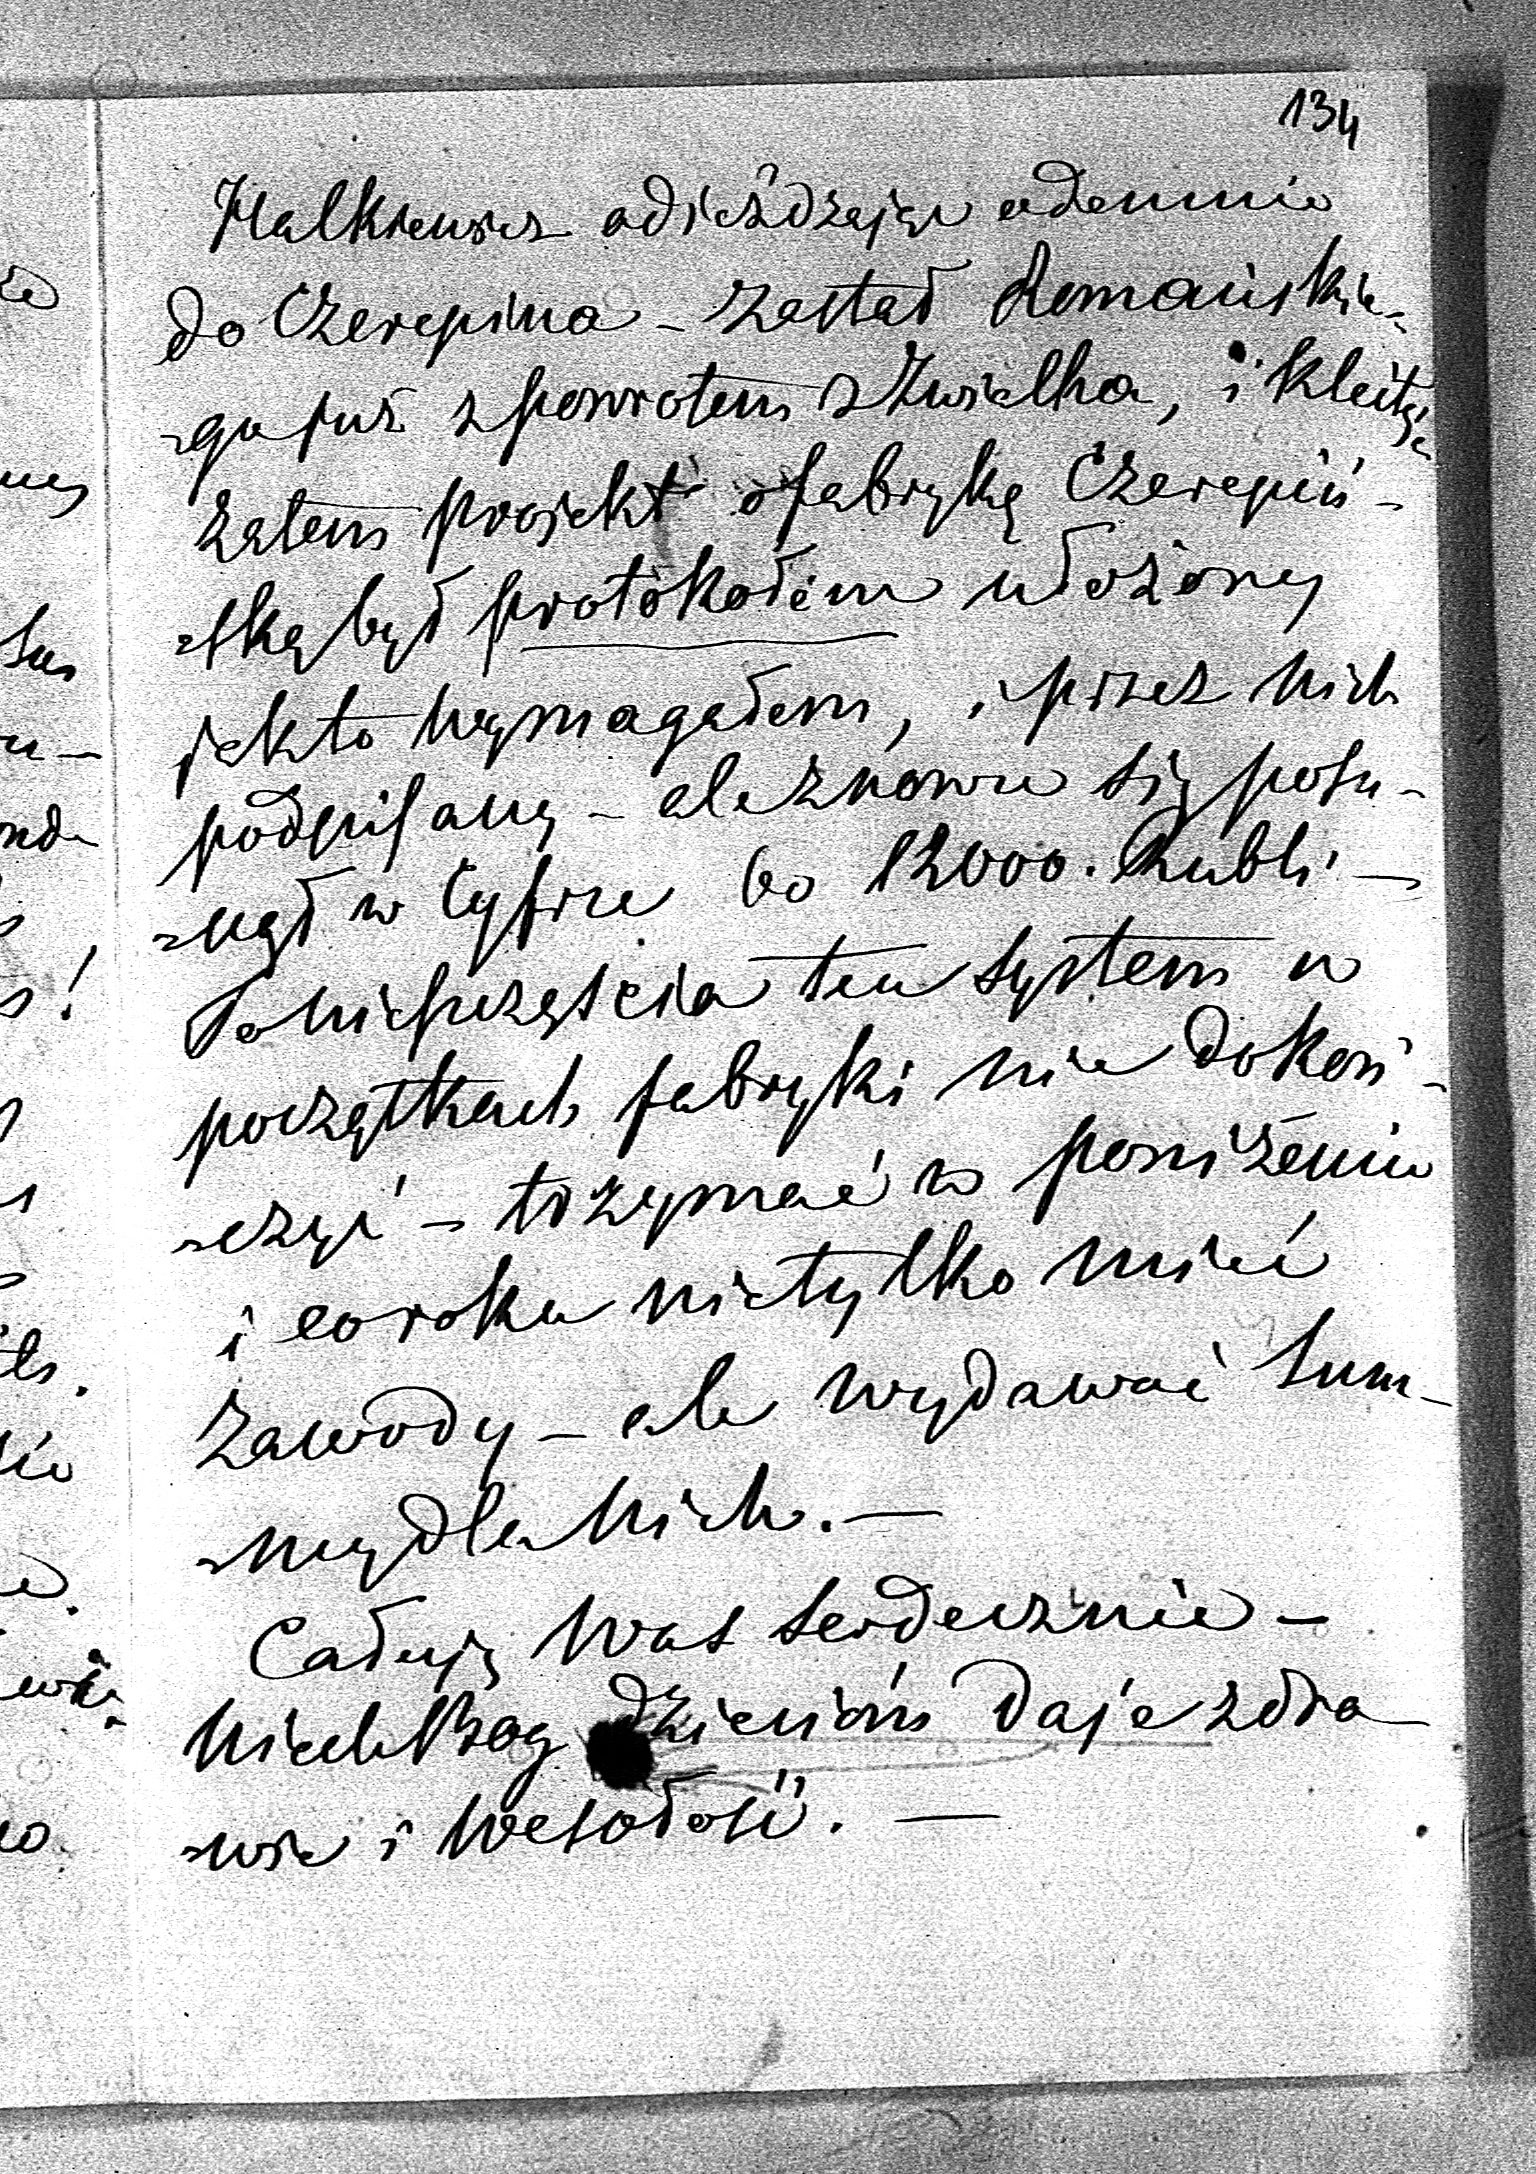 134
Malkiewicz odjeżdżając odemnie
do Czerepina – zastał Romańskie-
-go już z powrotem z Zwielka, i
zatem projekt o fabrykę Czerepiń-
-ską był protokołem ułożony
jak to wymagałem, i przez nich
podpisany – ale znowu się posu-
-nął w cyfrze do 12000. Rubli –
To nieszczęścia ten system w
początkach fabryki nie dokoń-
-czyć – trzymać w poniżeniu
i co roku nietylko mieć
zawody – ale wydawać sum-
-my dla nich. –
Całuję Was serdecznie –
Niech Bog Dzieciom daje zdro-
-wie i wesołość. –